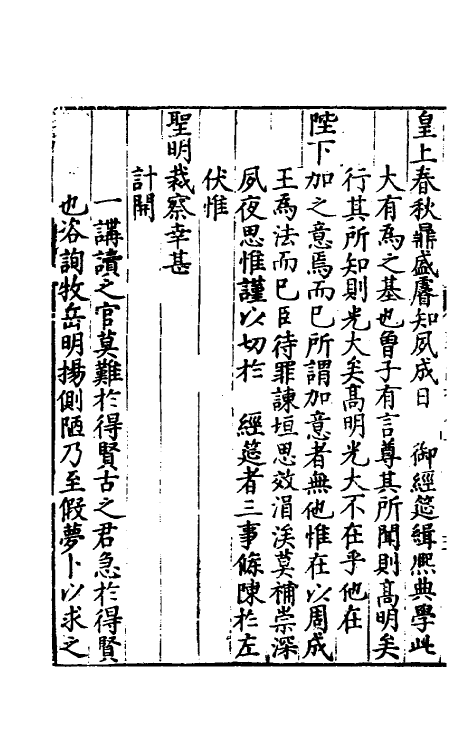 皇上春秋鼎盛睿知夙成日　御經筵緝熈典學此
大有爲之基也曾子有言尊其所聞則髙明矣
行其所知則光大矣髙明光大不在乎他在
陛下加之意焉而已所謂加意者無他惟在以周成
王爲法而已臣待罪諫垣思效涓涘莫補崇深
夙夜思惟謹以切於　經筵者三事條陳於左
伏惟
聖明裁察幸甚
計開
一講讀之官莫難於得賢古之君急於得賢
也咨詢牧岳明揚側陋乃至假夢卜以求之